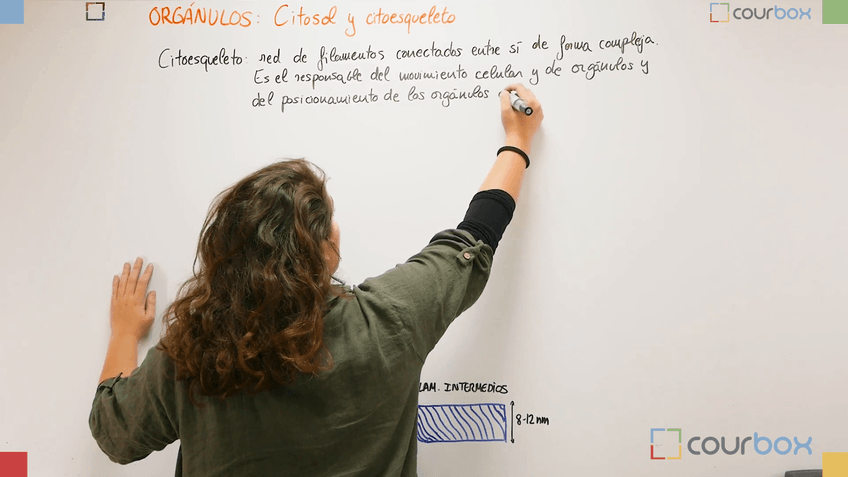 ORGÁNULOS: Citosol y citoesqueleto
courbox
Citoesqueleto: red de filamentos conectados entre sí de forma compleja.
Es el responsable del movimiento celular y de orgánulos y
del posicionamiento de los orgánulos
LAM. INTERMEDIOS
8-12 nm
courbox